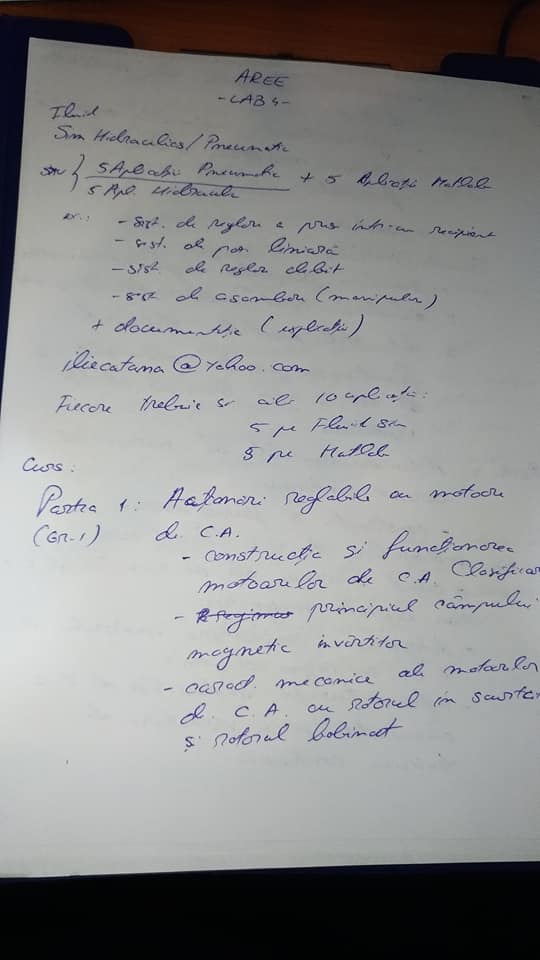 AREE
- LAB 4 -
Fluid
Sim Hidraulics / Pneumatic
sau { 5 Aplicatii Pneumatic + 5 Aplicații Matlab
5 Apl. Hidraulic
ex.: - sist. de reglare a pres intr-un recipient
- sist. de poz. liniară
- sist. de reglare debit
- sist. de asamblare (manipulor)
+ documentație (explicații)
iliecatana@yahoo.com
Fiecare trebuie să aibă 10 aplicații:
5 pe Fluid Sim
5 pe Matlab
Curs:
Partea 1: Acționari reglabile cu motoare
(Gr. 1) de C.A.
- construcția și funcționarea
motoarelor de C.A. Clasificar
- principiul câmpului
magnetic învîrtitor
- caract. mecanice ale motoarelor
de C.A. cu rotorul in scurtcir
și rotorul bobinat